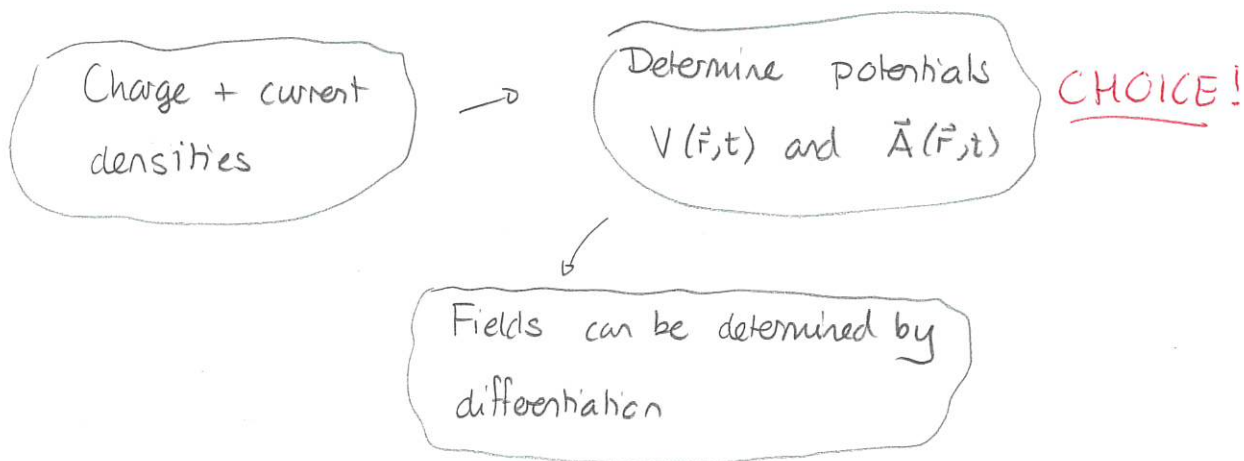 Charge + current
densities
Determine potentials
V(r⃗,t) and A⃗(r⃗,t)
CHOICE!
Fields can be determined by
differentiation